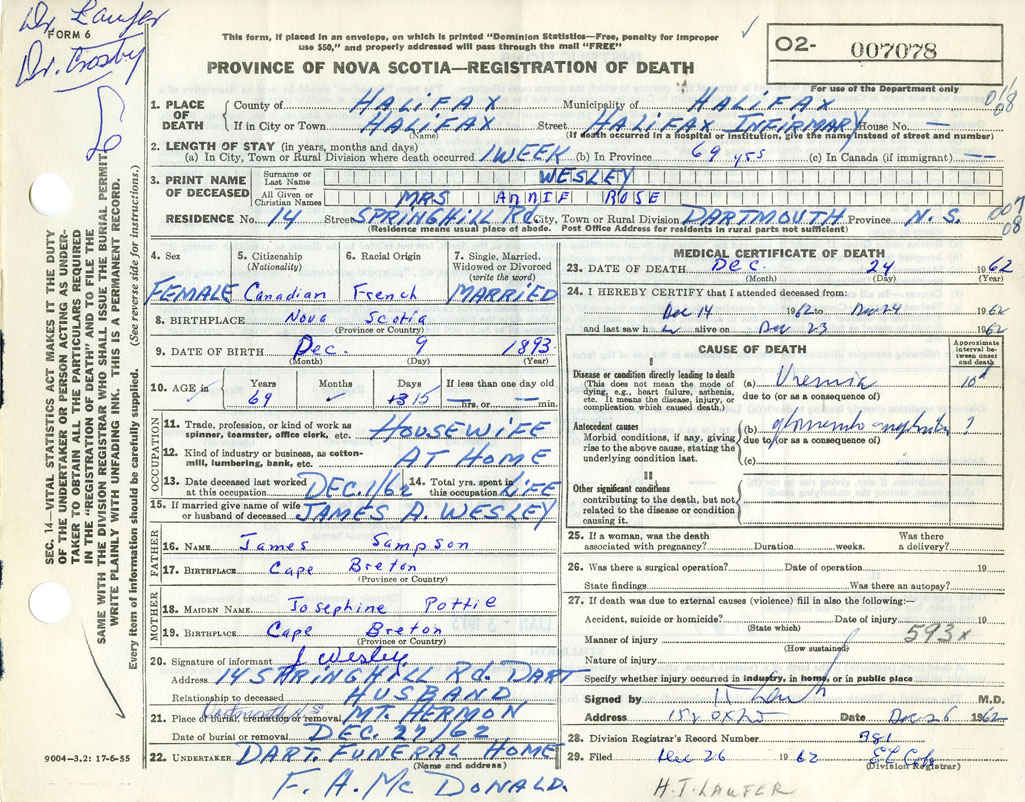 Dr. Laufer
Dr. Crosby
FORM 6
This form, if placed in an envelope, on which is printed "Dominion Statistics—Free, penalty for improper
use $50," and properly addressed will pass through the mail "FREE"
PROVINCE OF NOVA SCOTIA—REGISTRATION OF DEATH
O2- 007078
For use of the Department only
SEC. 14—VITAL STATISTICS ACT MAKES IT THE DUTY
OF THE UNDERTAKER OR PERSON ACTING AS UNDER-
TAKER TO OBTAIN ALL THE PARTICULARS REQUIRED
IN THE "REGISTRATION OF DEATH" AND TO FILE THE
SAME WITH THE DIVISION REGISTRAR WHO SHALL ISSUE THE BURIAL PERMIT
WRITE PLAINLY WITH UNFADING INK. THIS IS A PERMANENT RECORD.
Every item of information should be carefully supplied. (See reverse side for instructions.)
1. PLACE OF DEATH County of HALIFAX Municipality of HALIFAX
If in City or Town HALIFAX Street HALIFAX INFIRMARY House No. —
(Name) (If death occurred in a hospital or institution, give the name instead of street and number)
018
08
2. LENGTH OF STAY (in years, months and days)
(a) In City, Town or Rural Division where death occurred 1 WEEK (b) In Province 69 yrs (c) In Canada (if immigrant) —
3. PRINT NAME OF DECEASED Surname or Last Name WESLEY
All Given or Christian Names MRS ANNIE ROSE
RESIDENCE No. 14 Street SPRINGHILL Rd. City, Town or Rural Division DARTMOUTH Province N.S.
(Residence means usual place of abode. Post Office Address for residents in rural parts not sufficient)
007
08
4. Sex 5. Citizenship (Nationality) 6. Racial Origin 7. Single, Married, Widowed or Divorced (write the word)
FEMALE Canadian French MARRIED
8. BIRTHPLACE Nova Scotia
(Province or Country)
9. DATE OF BIRTH Dec. 9 1893
(Month) (Day) (Year)
10. AGE in Years Months Days If less than one day old
69 — 15 — hrs. or — min.
OCCUPATION
11. Trade, profession, or kind of work as spinner, teamster, office clerk, etc. HOUSEWIFE
12. Kind of industry or business, as cotton-mill, lumbering, bank, etc. AT HOME
13. Date deceased last worked at this occupation DEC. 1/62 14. Total yrs. spent in this occupation LIFE
15. If married give name of wife or husband of deceased JAMES A. WESLEY
FATHER
16. NAME James Sampson
17. BIRTHPLACE Cape Breton
(Province or Country)
MOTHER
18. MAIDEN NAME Josephine Pottie
19. BIRTHPLACE Cape Breton
(Province or Country)
20. Signature of informant J Wesley
Address 14 SPRINGHILL Rd. DART
Relationship to deceased HUSBAND
21. Place of burial, cremation or removal Dartmouth N.S. MT. HERMON
Date of burial or removal DEC. 27/62
22. UNDERTAKER DART. FUNERAL HOME
(Name and address)
F. A. McDONALD.
9004—3.2: 17-6-55
MEDICAL CERTIFICATE OF DEATH
23. DATE OF DEATH Dec. 24 1962
(Month) (Day) (Year)
24. I HEREBY CERTIFY that I attended deceased from:
Dec 14 1962 to Dec 24 1962
and last saw h alive on Dec 23 1962
CAUSE OF DEATH
Approximate interval between onset and death
I
Disease or condition directly leading to death
(This does not mean the mode of dying, e.g., heart failure, asthenia, etc. It means the disease, injury, or complication which caused death.)
(a) Uremia 10d
due to (or as a consequence of)
Antecedent causes
Morbid conditions, if any, giving rise to the above cause, stating the underlying condition last.
(b) ?
due to (or as a consequence of)
(c)
II
Other significant conditions
contributing to the death, but not related to the disease or condition causing it.
25. If a woman, was the death associated with pregnancy? Duration weeks. Was there a delivery?
26. Was there a surgical operation? Date of operation 19
State findings Was there an autopsy?
27. If death was due to external causes (violence) fill in also the following:—
Accident, suicide or homicide? Date of injury 19
(State which)
593x
Manner of injury
(How sustained)
Nature of injury
Specify whether injury occurred in industry, in home, or in public place
Signed by M.D.
Address Date Dec 26 1962
28. Division Registrar's Record Number 981
29. Filed Dec 26 1962
(Division Registrar)
H.T. LAUFER